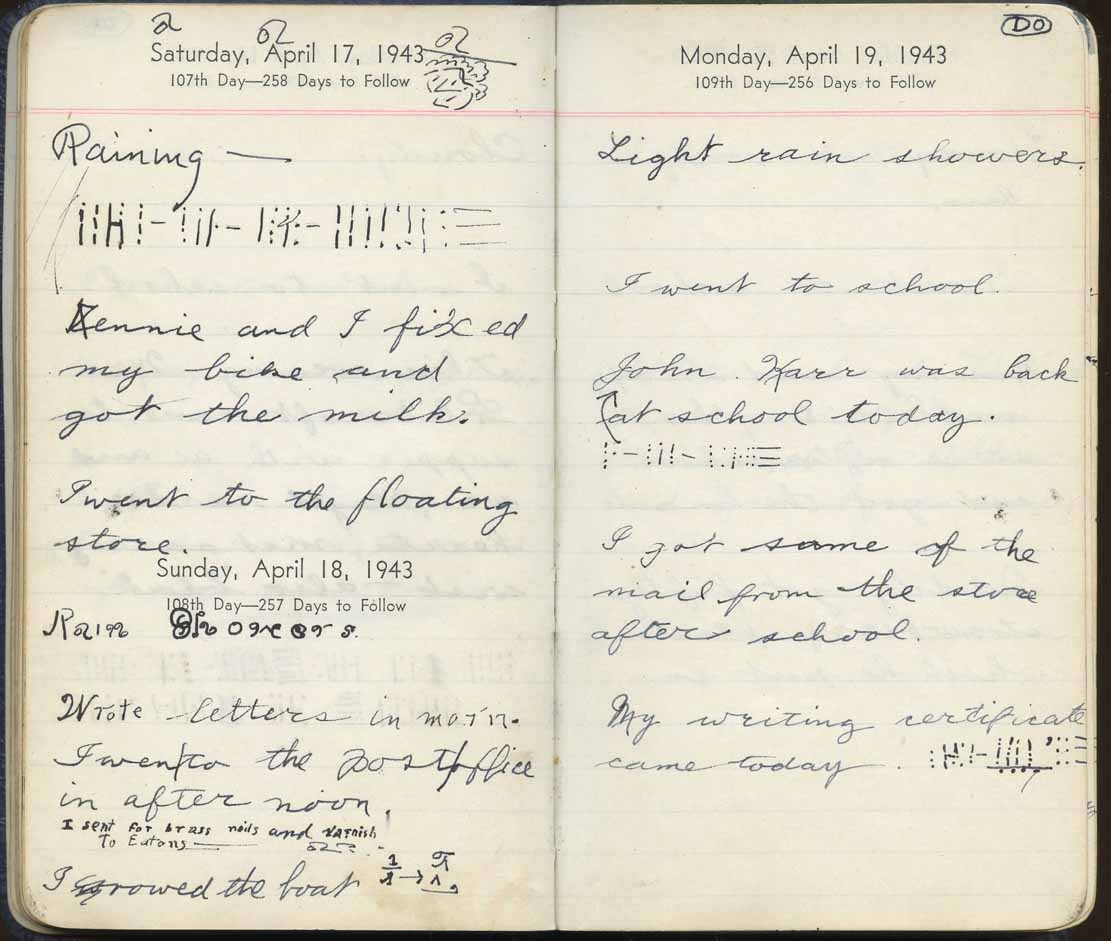 Saturday, April 17, 1943
107th Day—258 Days to Follow
Raining —
Kennie and I fixed
my bike and
got the milk.
I went to the floating
store.
Sunday, April 18, 1943
108th Day—257 Days to Follow
Rain Showers.
Wrote letters in morn.
I went to the post office
in after noon.
I sent for brass nails and varnish
To Eatons
I rowed the boat
DO
Monday, April 19, 1943
109th Day—256 Days to Follow
Light rain showers.
I went to school.
John Karr was back
at school today.
I got some of the
mail from the store
after school.
My writing certificate
came today